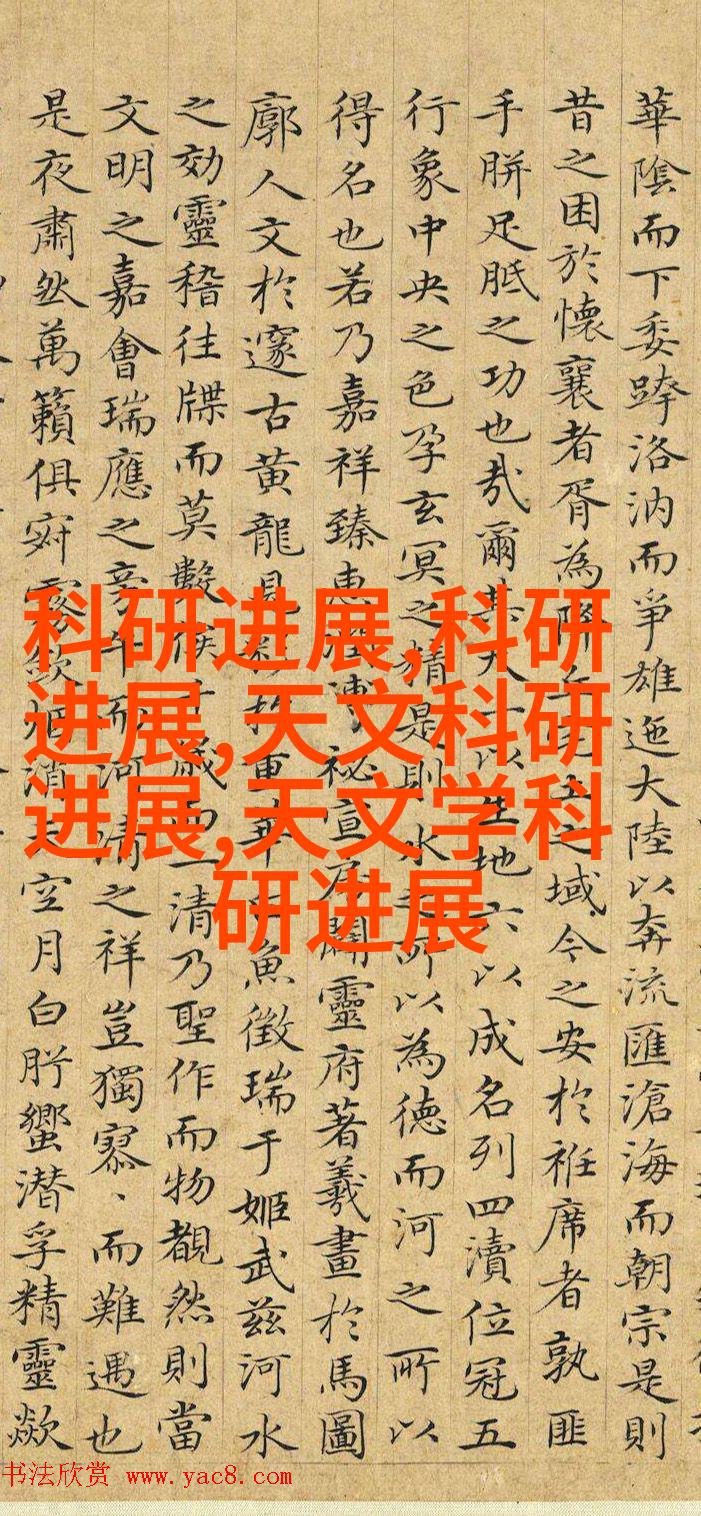 華陰而下委跨洛汭而爭雄迤大陸以奔流匯滄海而朝宗是則
昔之困於懷襄者胥為降丘宅土之域今之安於袵席者孰匪
手胼足胝之功也哉爾其天一以生地六以成名列四瀆位冠五
行象中央之色孕玄冥之精是則水之所以為德而河之所以
得名也若乃嘉祥臻惠溥祕宣闢靈府著羲畫於馬圖
廓人文於邃古黃龍見重華魚徵瑞于姬武茲河水
之効靈稽往牒而莫數俟千歲而一清乃聖作而物覩然則當
文明之嘉會瑞應之旁午而河清之祥豈獨寥、而難遇也
是夜肅然萬籟俱寂霧斂烟消天空月白肸蠁潛孚精靈歘
科研进展,科研
进展,天文科研
进展,天文学科
研进展
书法欣赏 www.yac8.com